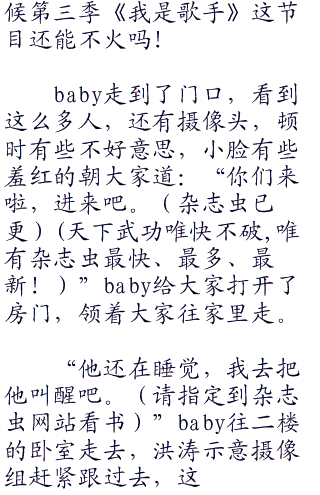 候第三季《我是歌手》这节
目还能不火吗！
baby走到了门口，看到
这么多人，还有摄像头，顿
时有些不好意思，小脸有些
羞红的朝大家道：“你们来
啦，进来吧。（杂志虫已
更）(天下武功唯快不破,唯
有杂志虫最快、最多、最
新！)”baby给大家打开了
房门，领着大家往家里走。
“他还在睡觉，我去把
他叫醒吧。（请指定到杂志
虫网站看书）”baby往二楼
的卧室走去，洪涛示意摄像
组赶紧跟过去，这